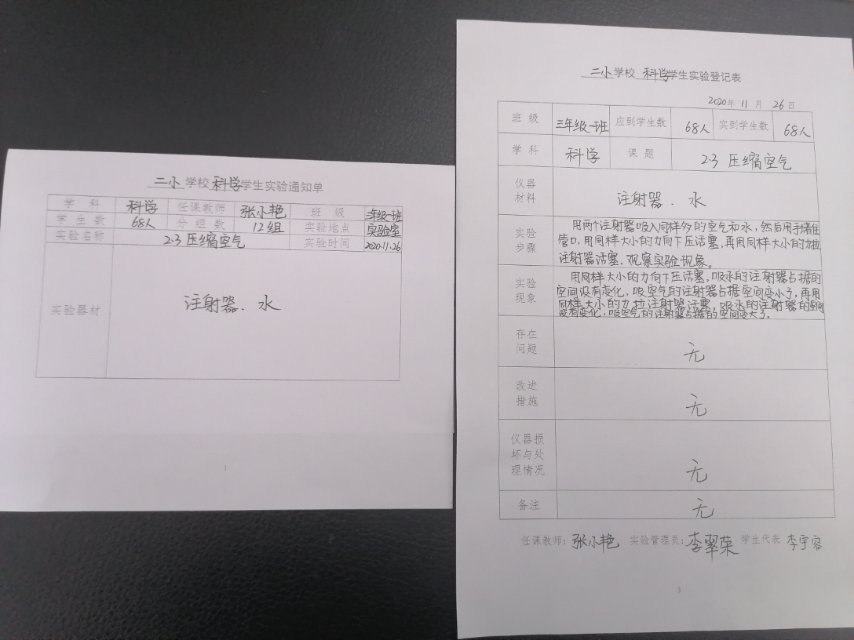 二小学校科学学生实验通知单
学科 科学 任课教师 张小艳 班级 三年级一班
学生数 68人 分组数 12组 实验地点 实验室
实验名称 2·3 压缩空气 实验时间 2020·11·26
实验器材 注射器、水
1
二小学校科学学生实验登记表
2020年11月26日
班级 三年级一班 应到学生数 68人 实到学生数 68人
学科 科学 课题 2·3 压缩空气
仪器
材料
注射器、水
实验
步骤
用两个注射器吸入同样多的空气和水,然后用手堵住
管口,用同样大小的力向下压活塞,再用同样大小的力拉
注射器活塞,观察实验现象。
实验
现象
用同样大小的力向下压活塞,吸水的注射器占据的
空间没有变化,吸空气的注射器占据空间变小了,再用
同样大小的力拉注射器活塞,吸水的注射器的空间
没有变化,吸空气的注射器占据的空间变大了。
存在
问题
无
改进
措施
无
仪器损
坏与处
理情况
无
备注 无
任课教师:张小艳 实验管理员:李翠荣 学生代表 李宇容